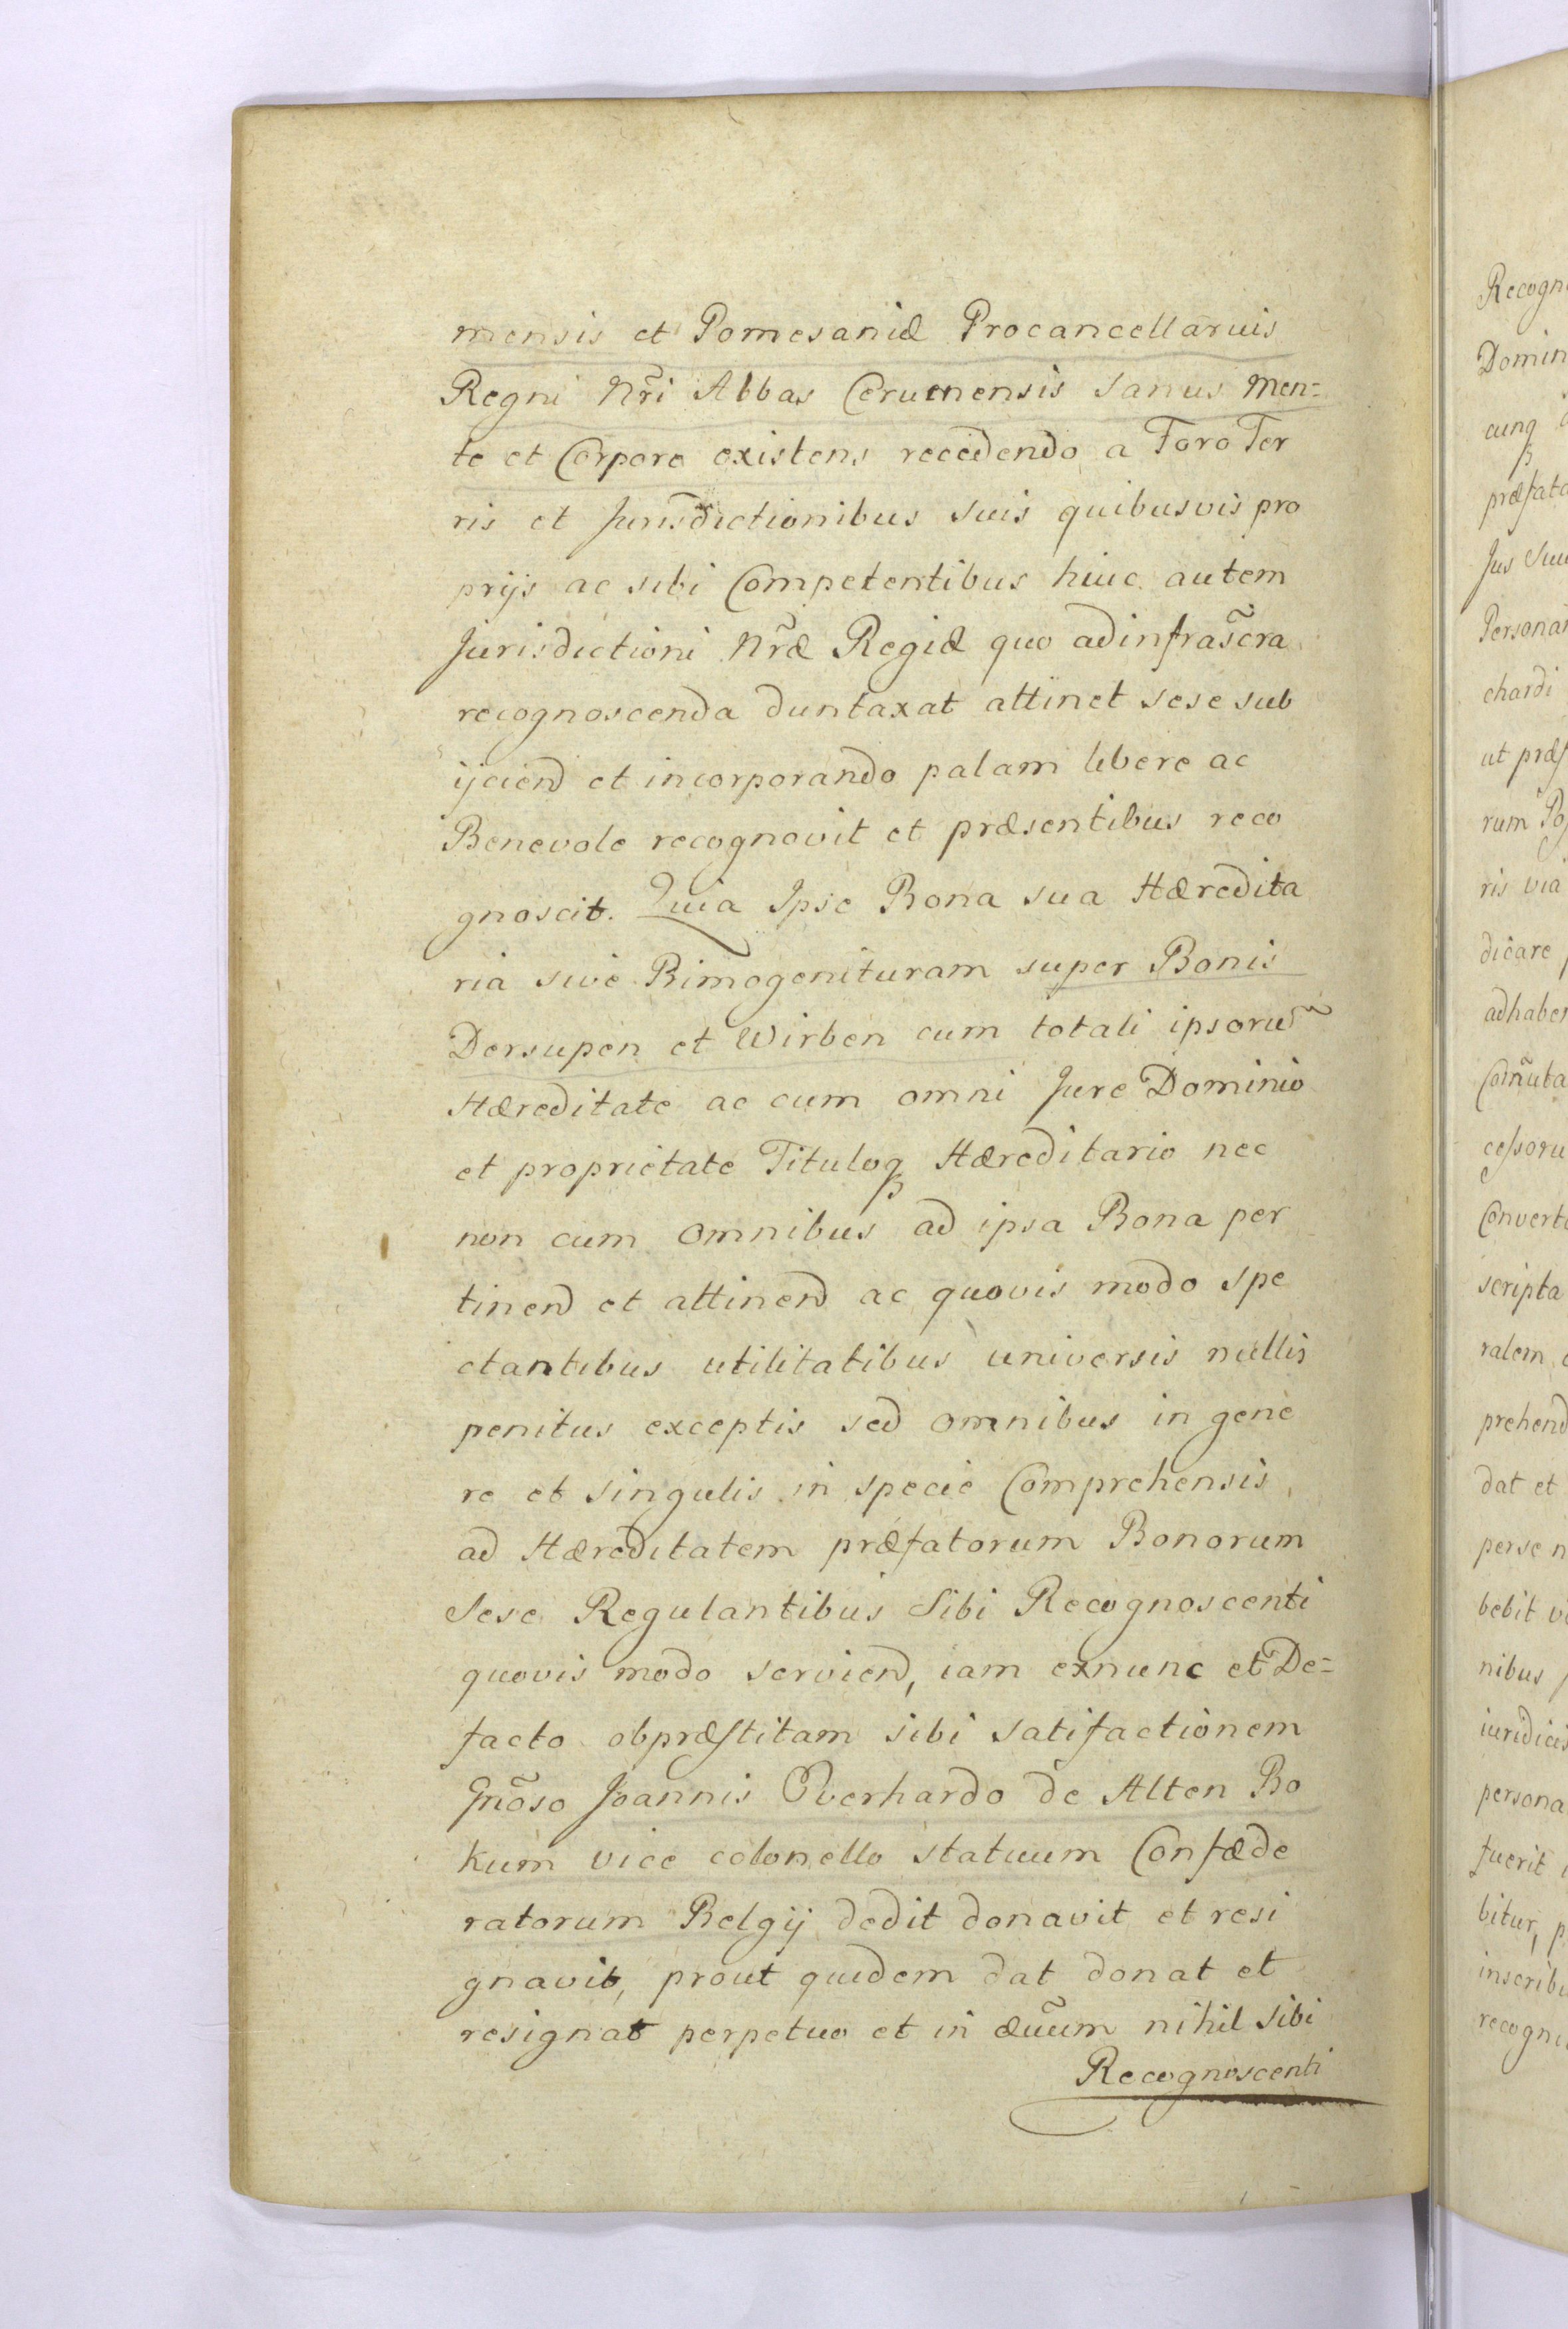 mensis et Pomesaniæ Procancellarius
Regni Nr̃i Abbas Cerumensis Sanus Men=
te et Corpore existens recedendo a Foro Ter
ris et Jurisdictionibus suis quibusvis pro
prijs ac sibi Competentibus huic autem
Jurisdictioni Nr̃æ Regiæ quo ad infrascr̃a
recognoscenda duntaxat attinet sese sub
ijciend et incorporando palam libere ac
Benevole recognovit et præsentibus reco
gnoscit. Quia Ipse Bona sua Hæredita
ria sive Bimogenituram super Bonis
Dersupen et Wirben cum totali ipsorum
Hæreditate ac cum omni Jure Dominio
et proprietate Tituloq Hæreditario nec
non cum omnibus ad ipsa Bona per
tinend et attinend ac quovis modo spe
ctantibus utilitatibus universis nullis
penitus exceptis sed omnibus in gene
re et singulis in specie Comprehensis
ad Hæreditatem præfatorum Bonorum
Sese Regulantibus Sibi Recognoscenti
quovis modo serviend, iam exnunc et De=
facto obpræstitam sibi satifactionem
Gñoso Joannis Eberhardo de Alten Bo
kum vice colonello statuum Confæde
ratorum Belgij dedit donavit et resi
gnavit, prout quidem dat donat et
resignat perpetuo et in æũum nihil sibi
Recognoscenti
Recogn
Domin
cunq
præfato
Jus Suu
Personar
chardi
ut præf
rum Po
ris via
dicare
adhaber
Com̃uta
cessoru
Converte
scripta
ralem
prehend
dat et
perse n
bebit v
nibus
iuridicis
persona
fuerit
bitur, p
inscribu
recogni